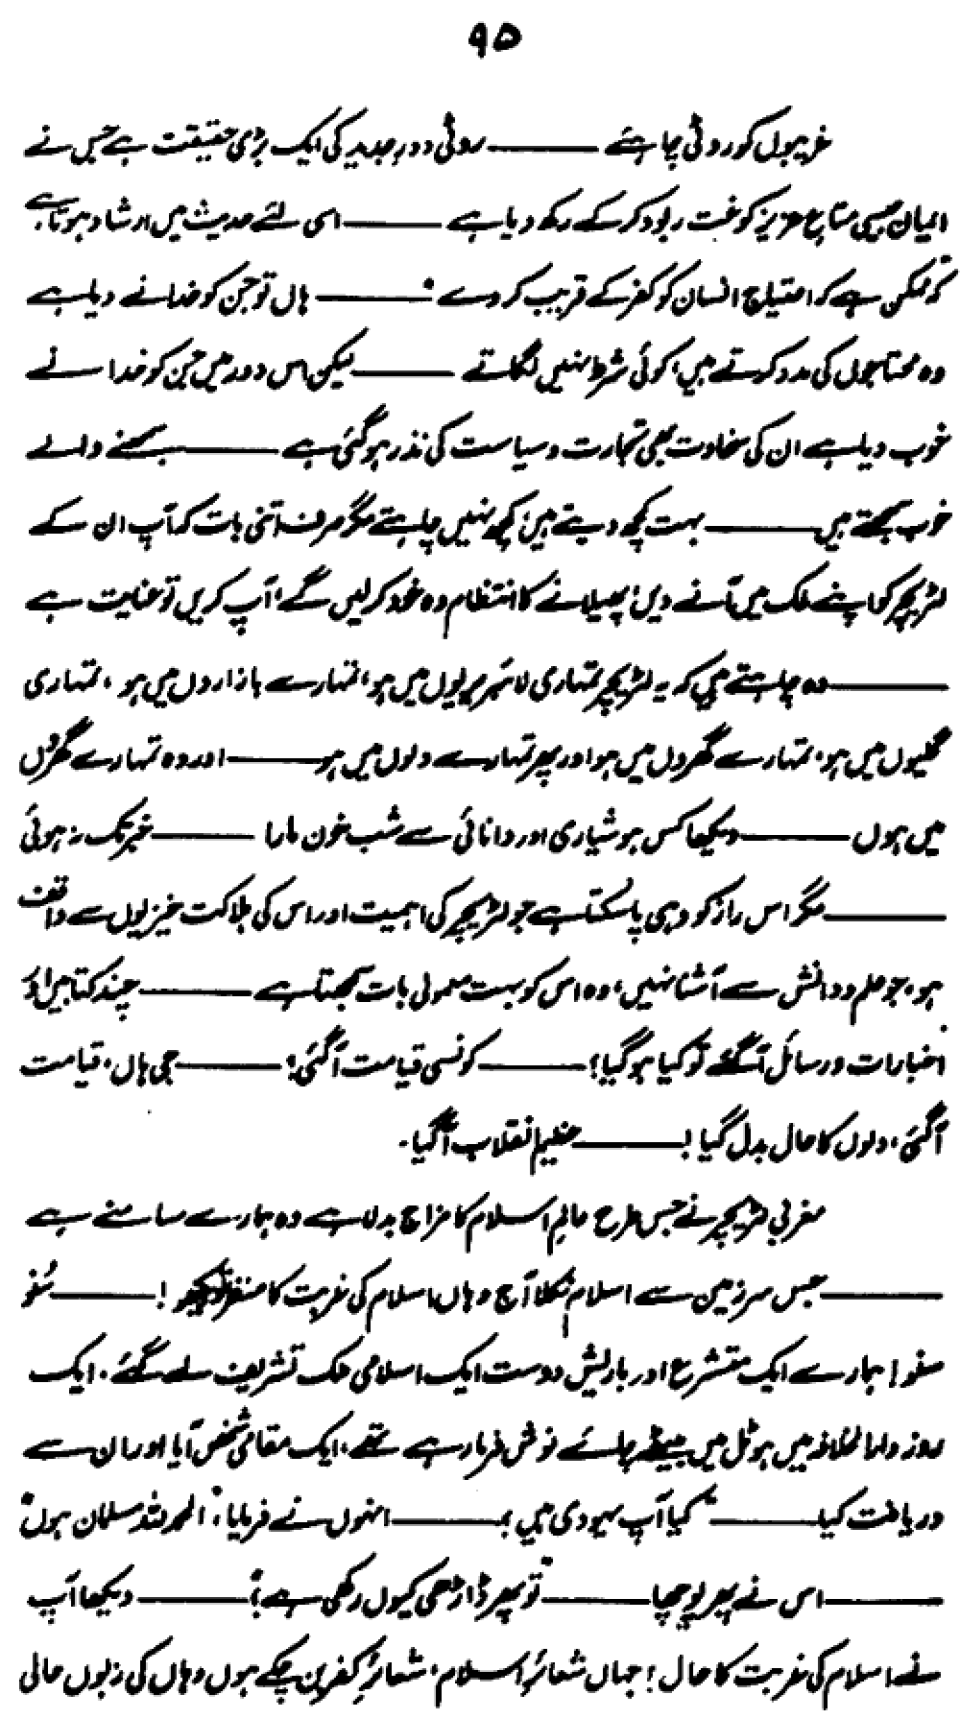 ۹۵
غریبوں کو روٹی چاہئے ——— روٹی دورِ جدید کی ایک بڑی حقیقت ہے جس نے
ایمان جیسی متاعِ عزیز کو غت ربود کرکے رکھ دیا ہے ——— اسی لئے حدیث میں ارشاد ہوتا ہے
کہ "ممکن ہے کہ احتیاج انسان کو کفر کے قریب کر دے" ——— ہاں تو جن کو خدا نے دیا ہے
وہ محتاجوں کی مدد کرتے ہیں، کوئی شرط نہیں لگاتے ——— لیکن اس دور میں جن کو خدا نے
خوب دیا ہے ان کی سخاوت بھی تجارت و سیاست کی نذر ہو گئی ہے ——— سمجھنے والے
خوب سمجھتے ہیں ——— بہت کچھ دیتے ہیں، کچھ نہیں چاہتے مگر صرف اتنی بات کہ آپ ان کے
لٹریچر کو اپنے ملک میں آنے دیں، پھیلانے کا انتظام وہ خود کرلیں گے، آپ کریں تو عنایت ہے
——— وہ چاہتے ہیں کہ یہ لٹریچر تمہاری لائبریریوں میں ہو، تمہارے بازاروں میں ہو، تمہاری
گلیوں میں ہو، تمہارے گھروں میں ہو اور پھر تمہارے دلوں میں ہو ——— اور وہ تمہارے گھروں
میں ہوں ——— دیکھا کس ہوشیاری اور دانائی سے شب خون مارا ——— خبر تک نہ ہوئی
——— مگر اس راز کو وہی پا سکتا ہے جو لٹریچر کی اہمیت اور اس کی ہلاکت خیزیوں سے واقف
ہو، جو علم و دانش سے آشنا نہیں، وہ اس کو بہت معمولی بات سمجھتا ہے ——— چند کتابیں اور
اخبارات و رسائل آگئے تو کیا ہو گیا؟ ——— کونسی قیامت آگئی؟ ——— جی ہاں، قیامت
آگئی، دلوں کا حال بدل گیا! ——— عظیم انقلاب آگیا۔
مغربی لٹریچر نے جس طرح عالمِ اسلام کا مزاج بدلا ہے وہ ہمارے سامنے ہے
——— جس سرزمین سے اسلام نکلا آج وہاں اسلام کی غربت کا منظر تو دیکھو! ——— سُنو
سنو! ہمارے ایک متشرع اور باریش دوست ایک اسلامی ملک تشریف لے گئے۔ ایک
روز دارالخلافہ میں ہوٹل میں بیٹھے چائے نوش فرما رہے تھے، ایک مقامی شخص آیا اور ان سے
دریافت کیا ——— "کیا آپ یہودی ہیں؟" ——— انہوں نے فرمایا، "الحمدللہ مسلمان ہوں"
——— اس نے پھر پوچھا ——— "تو پھر ڈاڑھی کیوں رکھی ہے؟" ——— دیکھا آپ
نے اسلام کی غربت کا حال! جہاں شعائرِ اسلام، شعائرِ کفر بن چکے ہوں وہاں کی زبوں حالی